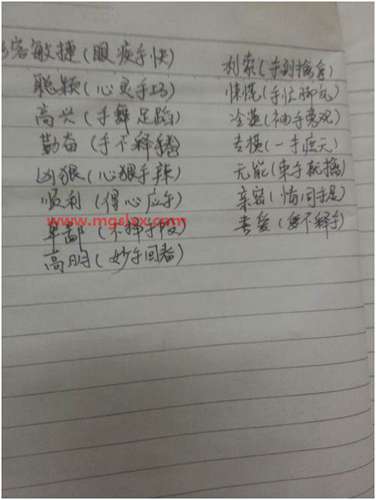 容敏捷(眼疾手快)
聪颖(心灵手巧)
高兴(手舞足蹈)
勤奋(手不释卷)
凶狠(心狠手辣)
顺利(得心应手)
卑鄙(不择手段)
高明(妙手回春)
利索(手到擒来)
惊慌(手忙脚乱)
(袖手旁观)
专横(一手遮天)
无能(束手就擒)
亲密(情同手足)
喜爱(爱不释手)